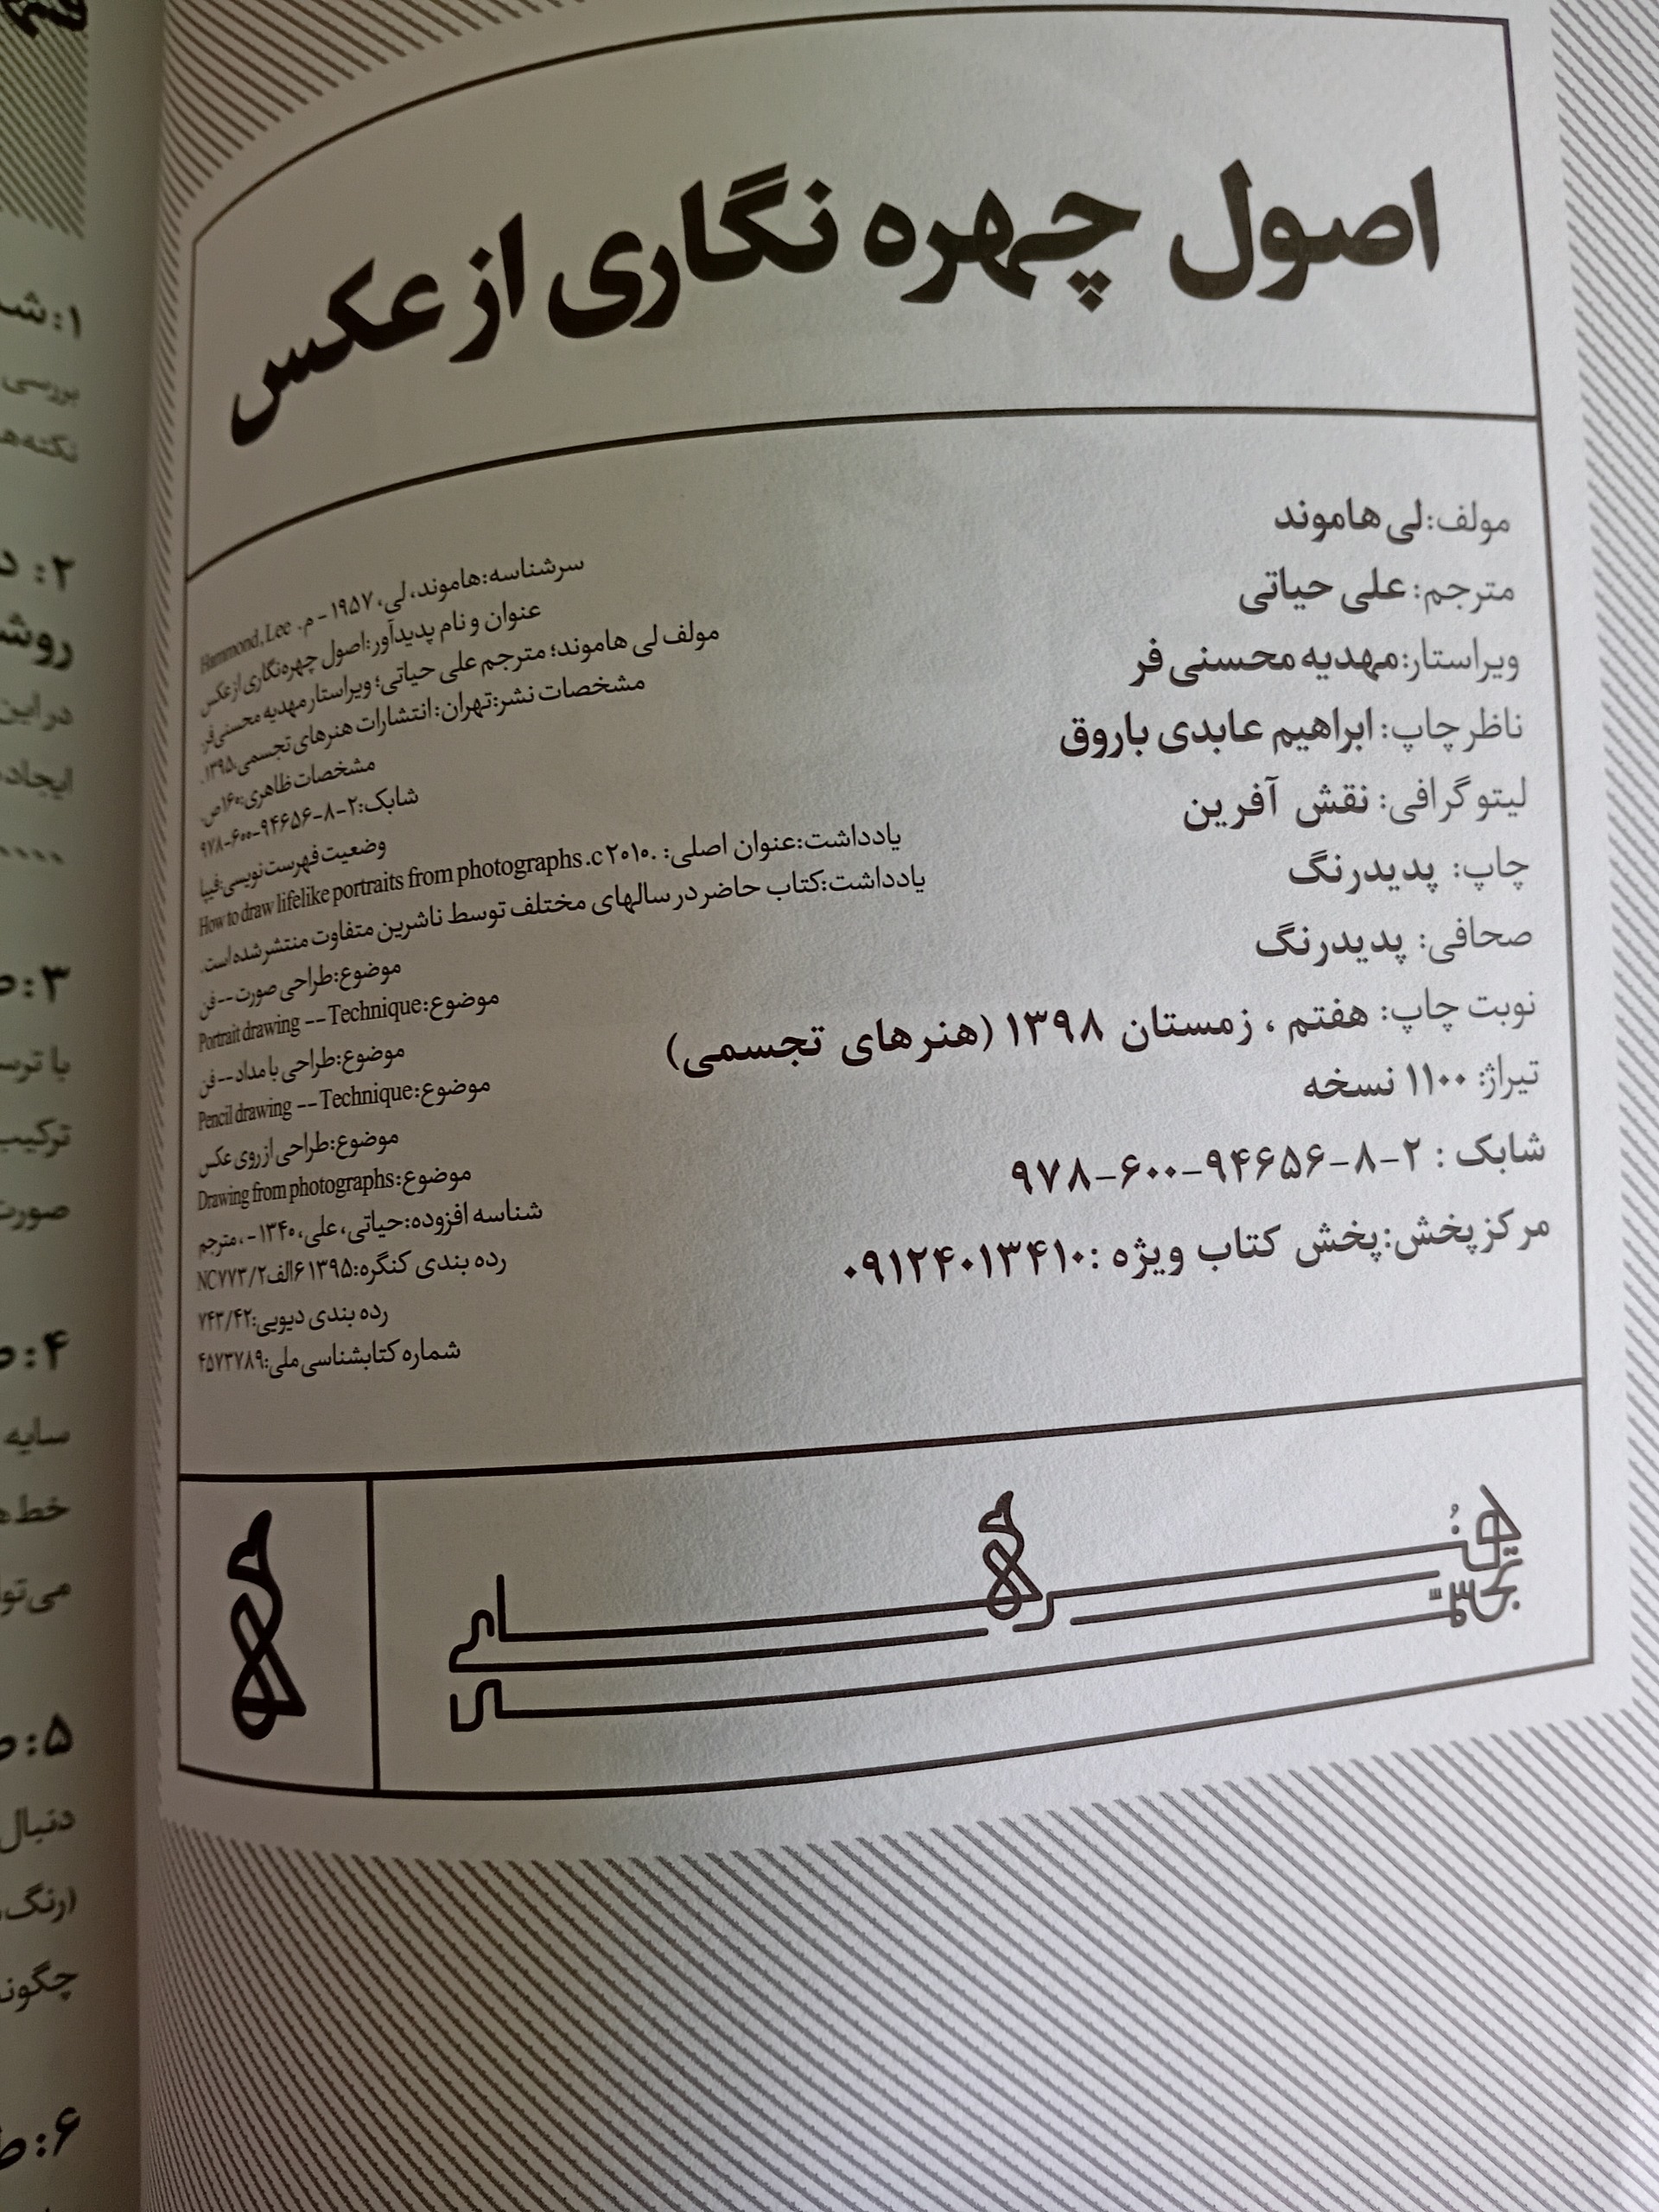 اصول چهره نگاری از عکس
مولف:لی هاموند
مترجم: علی حیاتی
ویراستار:مهدیه محسنی فر
ناظر چاپ: ابراهیم عابدی باروق
لیتوگرافی: نقش آفرین
چاپ: پدیدرنگ
صحافی: پدیدرنگ
نوبت چاپ: هفتم ، زمستان ۱۳۹۸ (هنرهای تجسمی)
تیراژ: ۱۱۰۰ نسخه
شابک : ۲-۸-۹۴۶۵۶-۶۰۰-۹۷۸
مرکز پخش:پخش کتاب ویژه :۰۹۱۲۴۰۱۳۴۱۰
سرشناسه:هاموند، لی، ۱۹۵۷ - م. Hammond, Lee
عنوان و نام پدیدآور:اصول چهره‌نگاری از عکس
مولف لی هاموند؛ مترجم علی حیاتی؛ ویراستار مهدیه محسنی‌فر.
مشخصات نشر:تهران: انتشارات هنرهای تجسمی،۱۳۹۵.
مشخصات ظاهری:۱۶۰ص.
شابک:۲-۸-۹۴۶۵۶-۶۰۰-۹۷۸
وضعیت فهرست نویسی:فیپا
یادداشت:عنوان اصلی: .How to draw lifelike portraits from photographs .c۲۰۱۰
یادداشت:کتاب حاضر در سالهای مختلف توسط ناشرین متفاوت منتشر شده است.
موضوع:طراحی صورت -- فن
موضوع:Portrait drawing -- Technique
موضوع:طراحی با مداد -- فن
موضوع:Pencil drawing -- Technique
موضوع:طراحی از روی عکس
موضوع:Drawing from photographs
شناسه افزوده:حیاتی، علی، ۱۳۴۰ - ، مترجم
رده بندی کنگره:۱۳۹۵ ۶الف۲/NC۷۷۳
رده بندی دیویی:۷۴۳/۴۲
شماره کتابشناسی ملی:۴۵۷۳۷۸۹
هنرهای
تجسمی
۱: ش
بررسی
نکته‌ها
۲: د
روش
در این
ایجاد
۳: ط
با ترس
ترکیب
صورت
۴: ط
سایه
خط‌ه
می‌توا
۵: ط
دنبال
(رنگ
چگونه
۶: ط